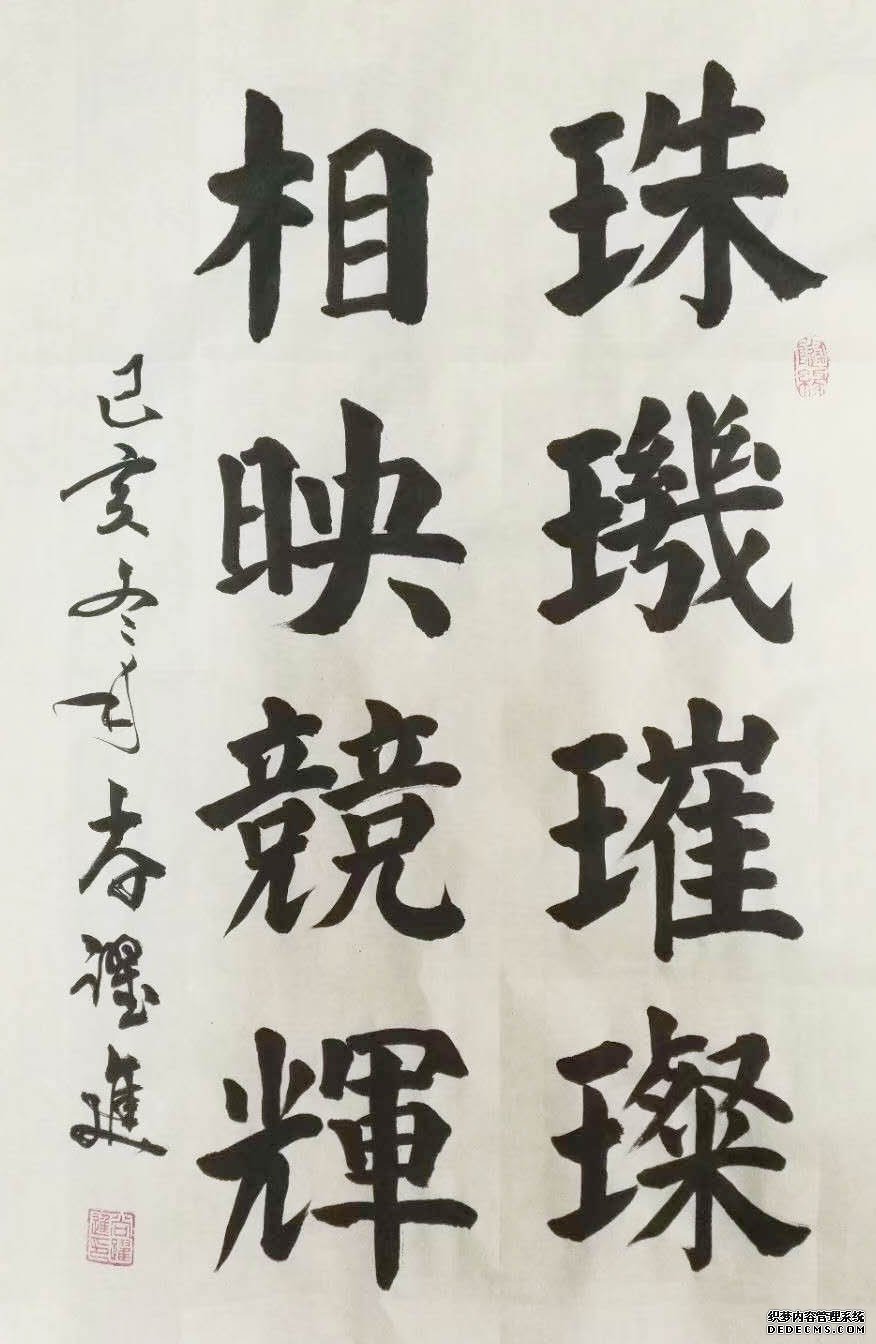 珠璣璀璨
相映競輝
己亥冬月躍進
织梦内容管理系统
DEDECMS.COM